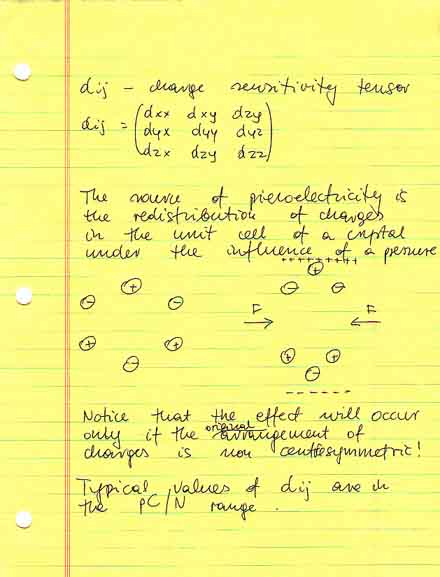 dij – charge sensitivity tensor
dij = (dxx dxy dzy
dyx dyy dyz
dzx dzy dzz)
The source of piezoelectricity is
the redistribution of charges
in the unit cell of a crystal
under the influence of a pressure
+ + + + + + + + +
+
− + + − −
F F
+ + − +
− −
− − − − − −
Notice that the effect will occur
only if the original arrangement of
charges is non centresymmetric!
Typical values of dij are in
the pC/N range.